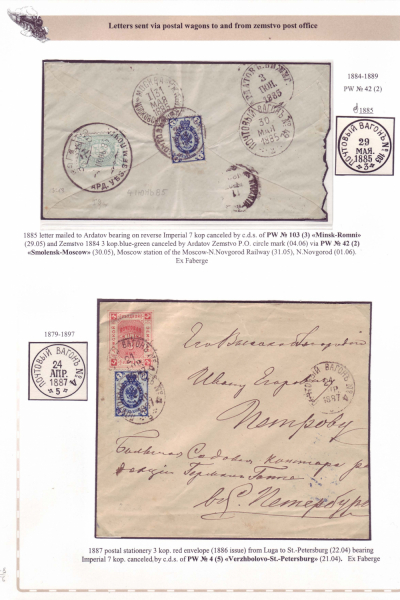 Letters sent via postal wagons to and from zemstvo post office
1884-1889
PW № 42 (2)
1885
ПОЧТОВЫЙ ВАГОНЪ № 103
29
МАЯ
1885
3
АРДАТОВ
3
ІЮН.
1885
ПОЧТОВ. ВАГОНЪ № 42
30
МАЯ
1885
31
МАЯ
1885 letter mailed to Ardatov bearing on reverse Imperial 7 kop canceled by c.d.s. of PW № 103 (3) «Minsk-Romni»
(29.05) and Zemstvo 1884 3 kop.blue-green canceled by Ardatov Zemstvo P.O. circle mark (04.06) via PW № 42 (2)
«Smolensk-Moscow» (30.05), Moscow station of the Moscow-N.Novgorod Railway (31.05), N.Novgorod (01.06).
Ex Faberge
1879-1897
ПОЧТОВЫЙ ВАГОНЪ № 4
24
АПР.
1887
5
Его Высокоблагородію
Ивану Егоровичу
Петрову
Большая Садовая
въ С. Петербургѣ
ПОЧТОВЫЙ ВАГОНЪ № 4
1887
1887 postal stationery 3 kop. red envelope (1886 issue) from Luga to St.-Petersburg (22.04) bearing
Imperial 7 kop. canceled.by c.d.s. of PW № 4 (5) «Verzhbolovo-St.-Petersburg» (21.04). Ex Faberge